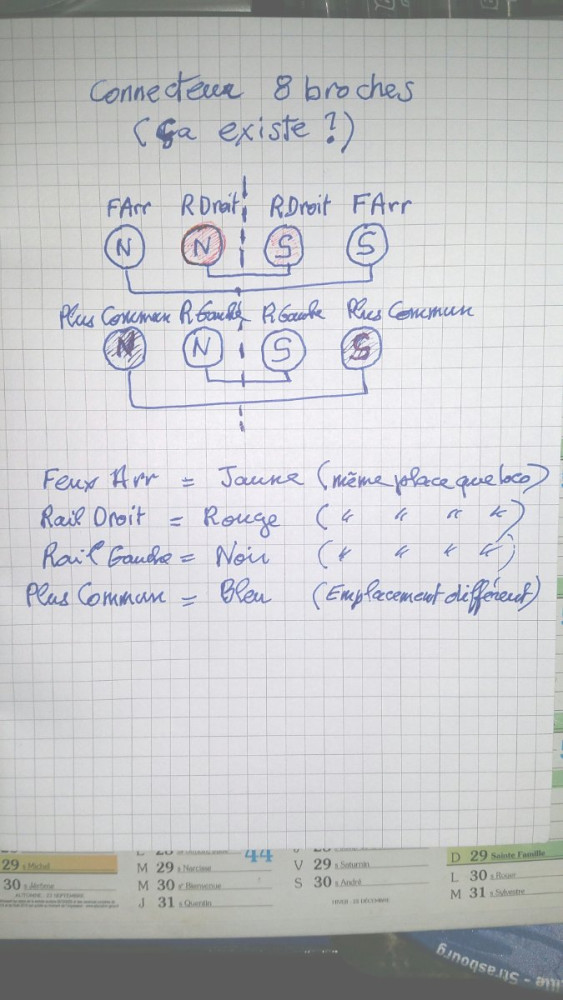 Connecteur 8 broches
(ça existe ?)
FArr R Droit R Droit FArr
N N S S
Plus Commun R Gauche R Gauche Plus Commun
N N S S
Feux Arr = Jaune (même place que loco)
Rail Droit = Rouge (" " " ")
Rail Gauche = Noir (" " " ")
Plus Commun = Bleu (Emplacement différent)
44
29 s Michel M 29 s Narcisse V 29 s Saturnin D 29 Sainte Famille
30 s Jérôme M 30 se Bienvenue S 30 s André L 30 s Roger
AUTOMNE : 22 SEPTEMBRE J 31 s Quentin HIVER : 22 DÉCEMBRE M 31 s Sylvestre
Strasbourg